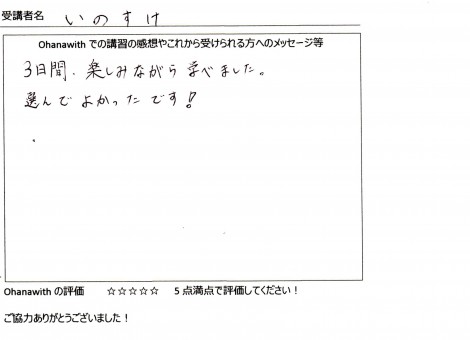 受講者名 いのすけ
Ohanawith での講習の感想やこれから受けられる方へのメッセージ等
3日間、楽しみながら学べました。
選んでよかったです!
Ohanawith の評価 ☆☆☆☆☆ 5 点満点で評価してください！
ご協力ありがとうございました！